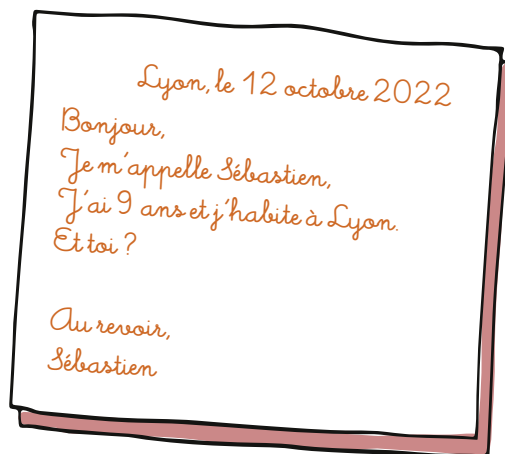 Lyon, le 12 octobre 2022
Bonjour,
Je m'appelle Sébastien,
J'ai 9 ans et j'habite à Lyon.
Et toi ?
Au revoir,
Sébastien